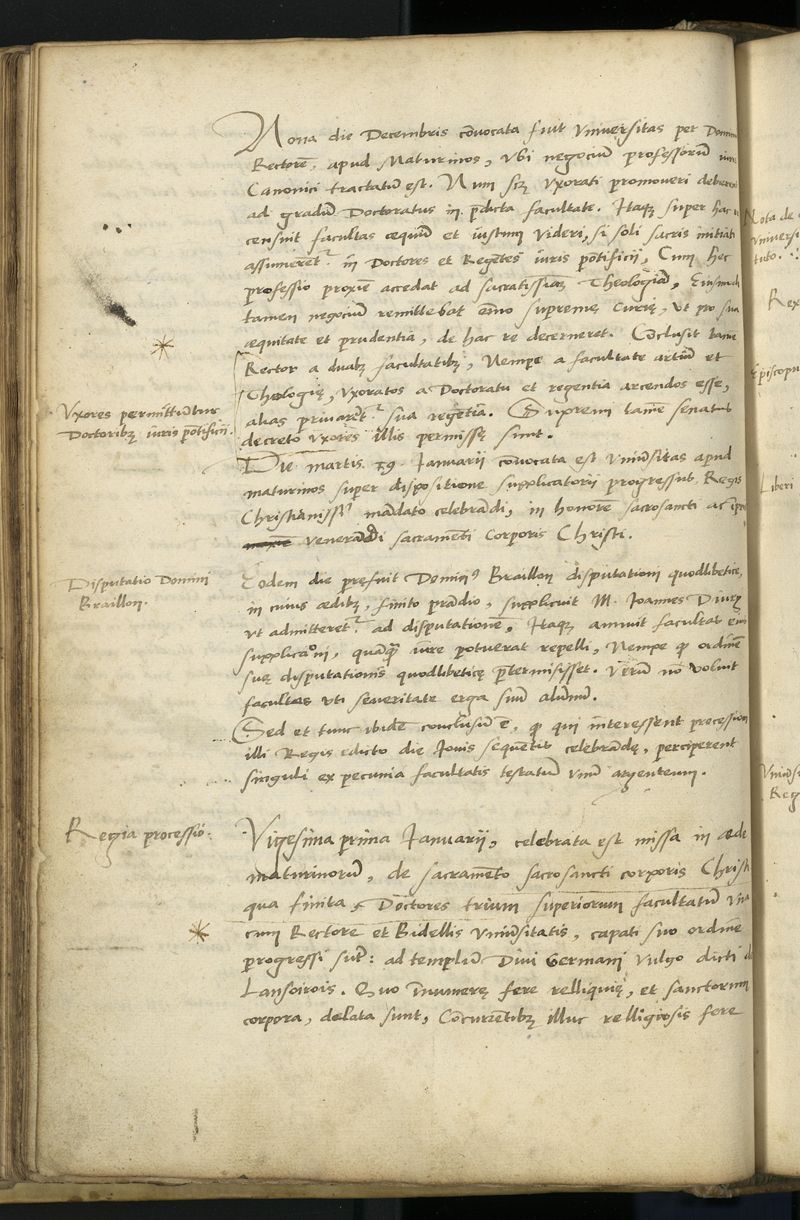 Nona die Decembris cōvocata fuit Vniversitas per Domin
Rectorē, apud Maturinos, vbi negociū professorū iuris
Canonici tractatū est. Num scz vxorati promoveri deberent
ad gradū Doctoratus in p̄dicta facultate. Itaqz super hac
censuit facultas æquū et iustum videri, si soli sacris initiati
assumerēt' in Doctores et Regētes iuris pōtificii, Cum hec
professio proxiē accedat ad sacratissimā Theologiā, Eiusmodi
tamen negociū remittebat om̄o supremę curię, vt pro sua
æquitate et prudentia, de hac re decerneret. Cōclusit tamē
Rector a duabz facultatibz, Nempe a facultate artiū et
Theologię, vxoratos a Doctoratu et regentia arcendos esse,
alias privarēt' sua regētia. Supremi tamē senatus
decreto vxores illis permissę sunt.
Vxores permittūtur
Doctoribz iuris pōtificii.
Die martis 19 Ianuarii cōvocata est Vniūsitas apud
maturinos super dispositione supplicatorii progressus, Regis
Christianissī mādato celebrādi, in honorē sacrosancti ac
venerādi sacramēti corporis Christi.
Disputatio Domini
Braillon.
Eodem die pręfuit Domin9 Braillon disputationi quodlibeticę,
in cuius ædibz, finito prādio, supplicuit M. Ioannes
vt admitteret' ad disputationē, Itaqz annuit facultas eius
supplicaōni, quāq̄ iure potuerat repelli, Nempe q̄ ordinē
suę disputationis quodlibeticę p̄termisisset. Verū nō voluit
facultas vti severitate erga suū alūnū.
Sed et tunc ibidē conclusū ē, q̄ qui interessent processioni
illi Regis edicto die Iovis sequētis celebrādę, perciperent
singuli ex pecunia facultatis testatū vnū argenteum.
Regia processio.
Vigesima prima Ianuarii, celebrata est missa in æde
maturinorū, de sacramēto sacrosancti corporis Christi
qua finita, Doctores trium superiorum facultatū vna
cum Rectore et Bidellis Vniūsitatis, capati suo ordine
progressi sūt: ad templū Divi Germani vulgo dicti de
Lanseirois. Quo īnumerę fere relliquię, et sanctorum
corpora, delata sunt, Cōcurrētibz illuc relligiosis fere
Nota de
vniversi
Rex
Episcopu
Liberi
Vniūsi
Reg